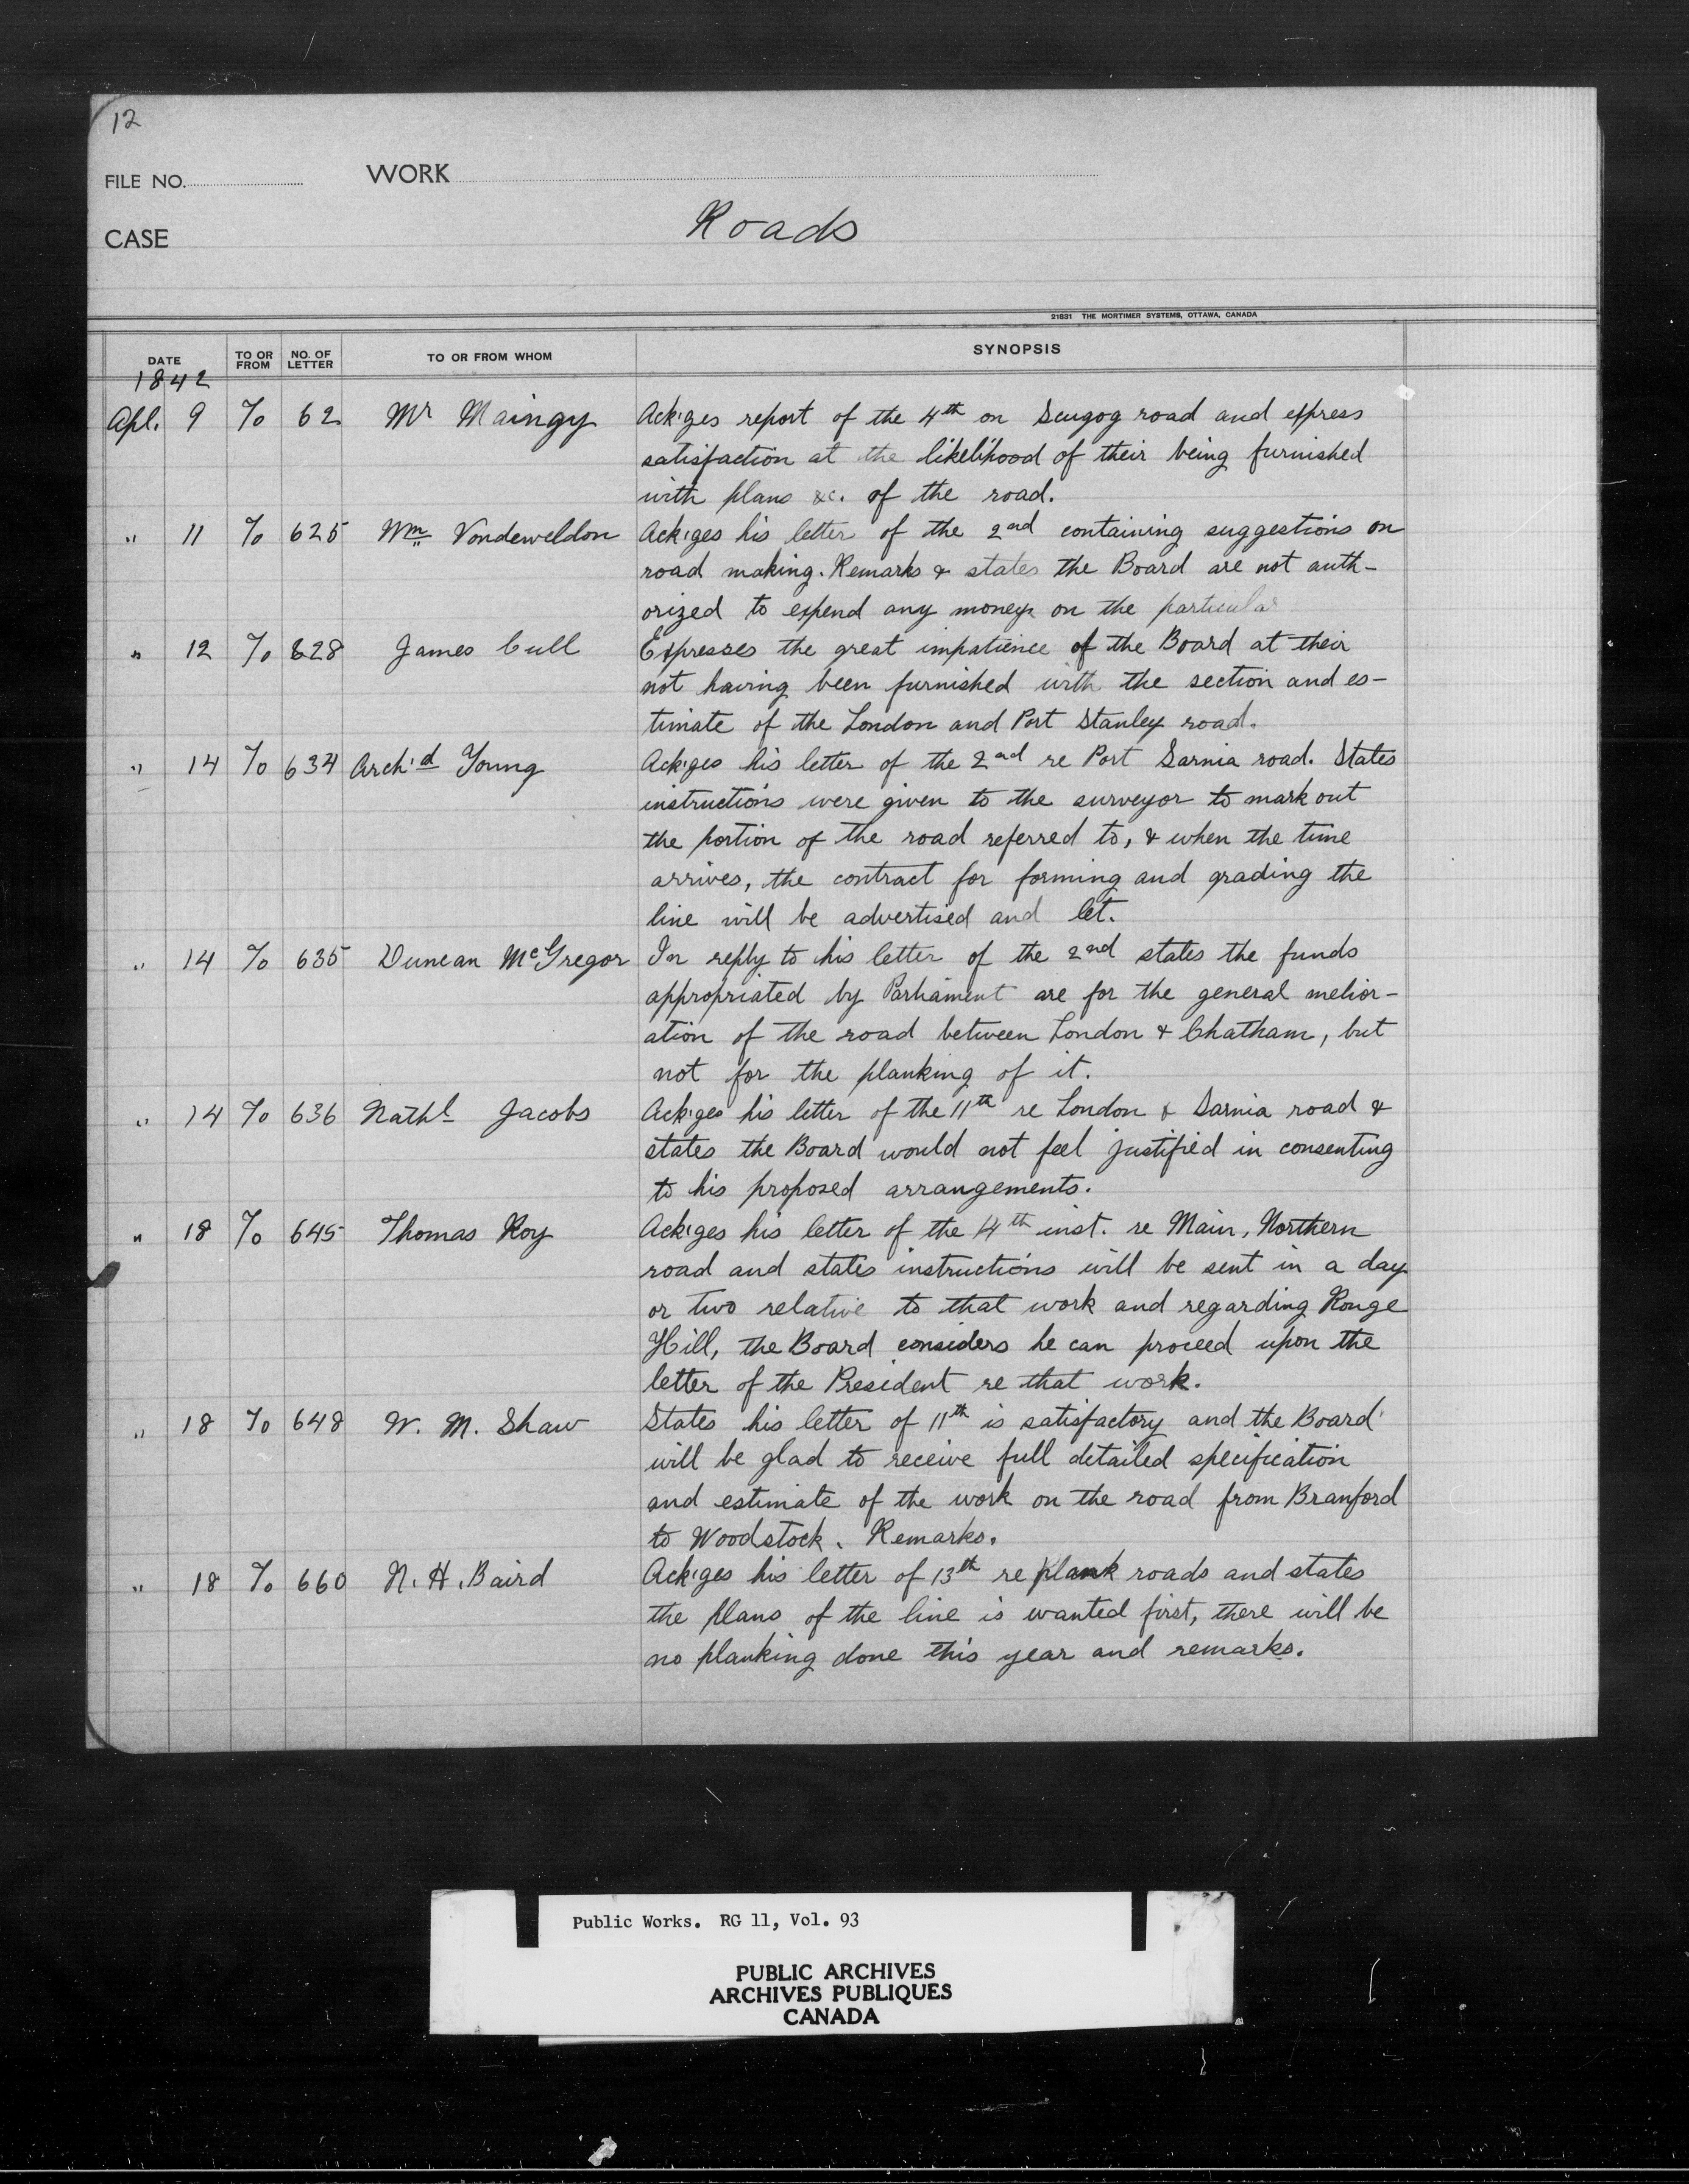 12
FILE NO. WORK
Roads
CASE
21831 THE MORTIMER SYSTEMS, OTTAWA, CANADA
DATE TO OR FROM NO. OF LETTER TO OR FROM WHOM SYNOPSIS
1842
Apl. 9 To 62 Mr Maingy Ack'ges report of the 4th on Scugog road and express
satisfaction at the likelihood of their being furnished
with plans &c. of the road.
" 11 To 625 Wm Vondeweldon Ack'ges his letter of the 2nd containing suggestions on
road making. Remarks & states the Board are not auth-
orized to expend any moneys on the particular
" 12 To 628 James Cull Expresses the great impatience of the Board at their
not having been furnished with the section and es-
timate of the London and Port Stanley road.
" 14 To 634 Arch'd Young Ack'ges his letter of the 2nd re Port Sarnia road. States
instructions were given to the surveyor to mark out
the portion of the road referred to, & when the time
arrives, the contract for forming and grading the
line will be advertised and let.
" 14 To 635 Duncan McGregor In reply to his letter of the 2nd states the funds
appropriated by Parliament are for the general melior-
ation of the road between London & Chatham, but
not for the planking of it.
" 14 To 636 Nathl Jacobs Ack'ges his letter of the 11th re London & Sarnia road &
states the Board would not feel justified in consenting
to his proposed arrangements.
" 18 To 645 Thomas Roy Ack'ges his letter of the 14th inst. re Main, Northern
road and states instructions will be sent in a day
or two relative to that work and regarding Rouge
Hill, the Board considers he can proceed upon the
letter of the President re that work.
" 18 To 648 W. M. Shaw States his letter of 11th is satisfactory and the Board
will be glad to receive full detailed specification
and estimate of the work on the road from Branford
to Woodstock. Remarks.
" 18 To 660 N. H. Baird Ack'ges his letter of 13th re plank roads and states
the plans of the line is wanted first, there will be
no planking done this year and remarks.
Public Works. RG 11, Vol. 93
PUBLIC ARCHIVES
ARCHIVES PUBLIQUES
CANADA